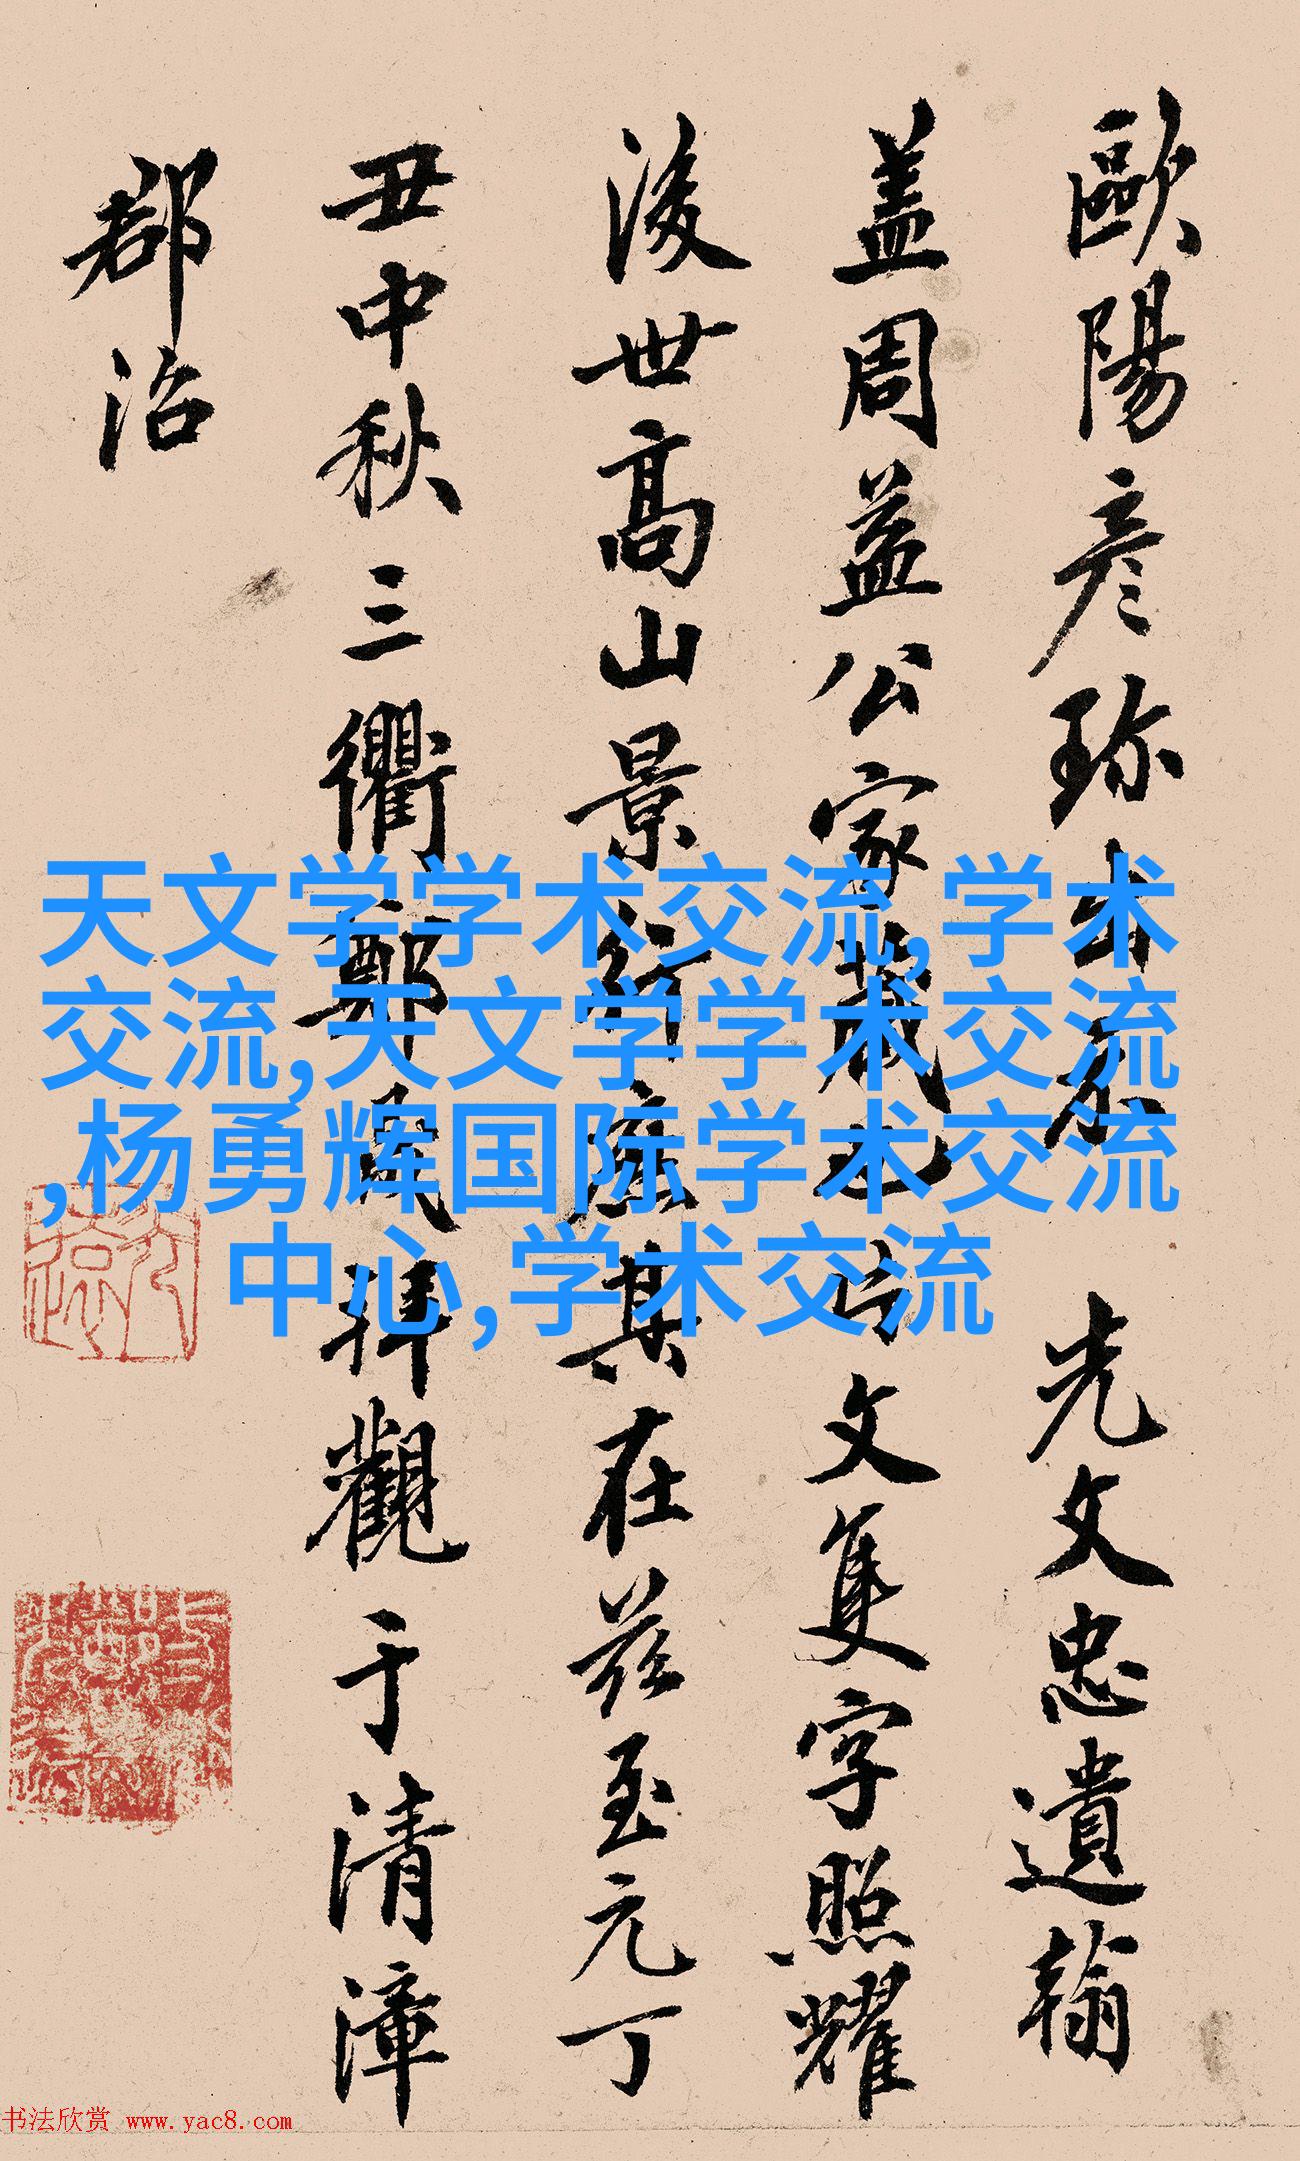 歐陽彦珎出示 光文忠遺翰
盖周益公家藏也片文隻字照耀
後世高山景行庶其在兹至元丁
丑中秋三衢鄭民拜觀于清漳
郡治
天文学学术交流,学术
交流,天文学学术交流
,杨勇辉国际学术交流
中心,学术交流
书法欣赏 www.yac8.com